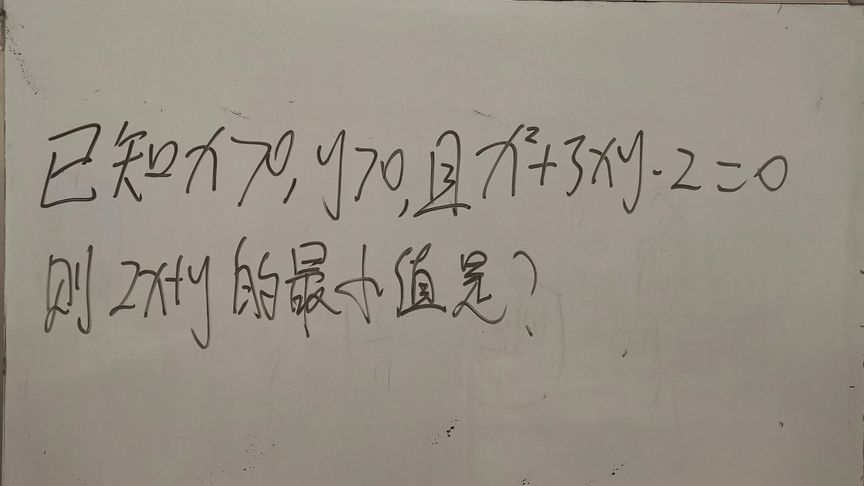 已知x>0,y>0,且x²+3xy-2=0
则2x+y的最小值是?